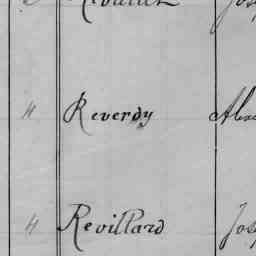 4 Reverdy
4 Revillard Jos